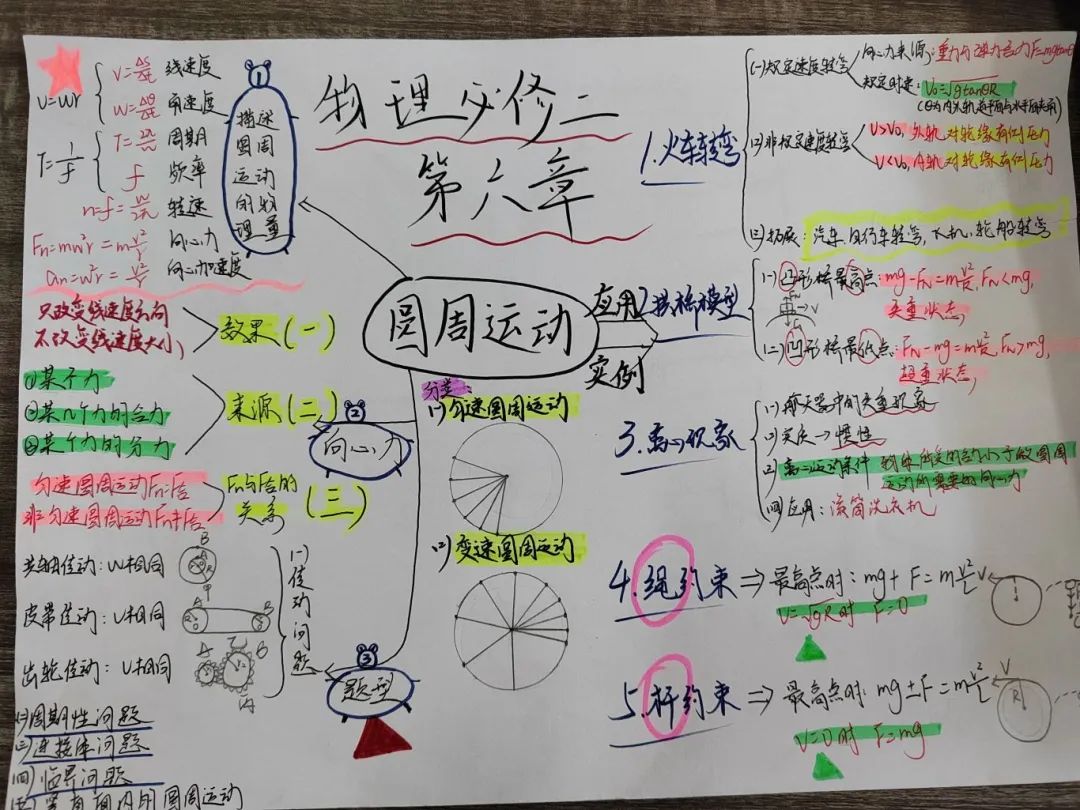 物理必修二
第六章
圆周运动
①
描述圆周运动的物理量
v=wr
v=Δs/Δt 线速度
w=Δθ/Δt 角速度
T=1/f
T=2π/w 周期
f 频率
n=f=w/2π 转速
Fn=mw²r=mv²/r 向心力
an=w²r=v²/r 向心加速度
②
向心力
效果(一)
只改变线速度方向
不改变线速度大小
来源(二)
①某个力
②某几个力的合力
③某个力的分力
(三)
Fn与F合的关系
匀速圆周运动Fn=F合
非匀速圆周运动Fn≠F合
③
题型
(一)传动问题
共轴传动:w相同
皮带传动:v相同
齿轮传动:v相同
(二)周期性问题
(三)连接体问题
(四)临界问题
(五)竖直面内的圆周运动
分类:
(一)匀速圆周运动
(二)变速圆周运动
应用实例
1.火车转弯
(一)规定速度转弯
向心力来源:重力与弹力合力F=mgtanθ
规定时速:V₀=√gtanθR
(二)非规定速度转弯
v>v₀,外轨对轮缘有侧压力
v<v₀,内轨对轮缘有侧压力
(三)拓展:汽车、自行车转弯,飞机、轮船转弯
2.拱桥模型
(一)凸形桥最高点:mg-FN=mv²/R,FN<mg,
失重状态,
FN
V
G
(二)凹形桥最低点:FN-mg=mv²/R,FN>mg,
超重状态,
3.离心现象
(一)航天器中的失重现象
(二)实质→惯性
(三)离心运动条件 物体所受的合力小于做圆周
运动所需要的向心力
(四)应用:滚筒洗衣机
4.绳约束⇒最高点时:mg+F=mv²/L
V=√gR时 F=0
V
5.杆约束⇒最高点时:mg±F=mv²/L
V=0时 F=mg
V
R